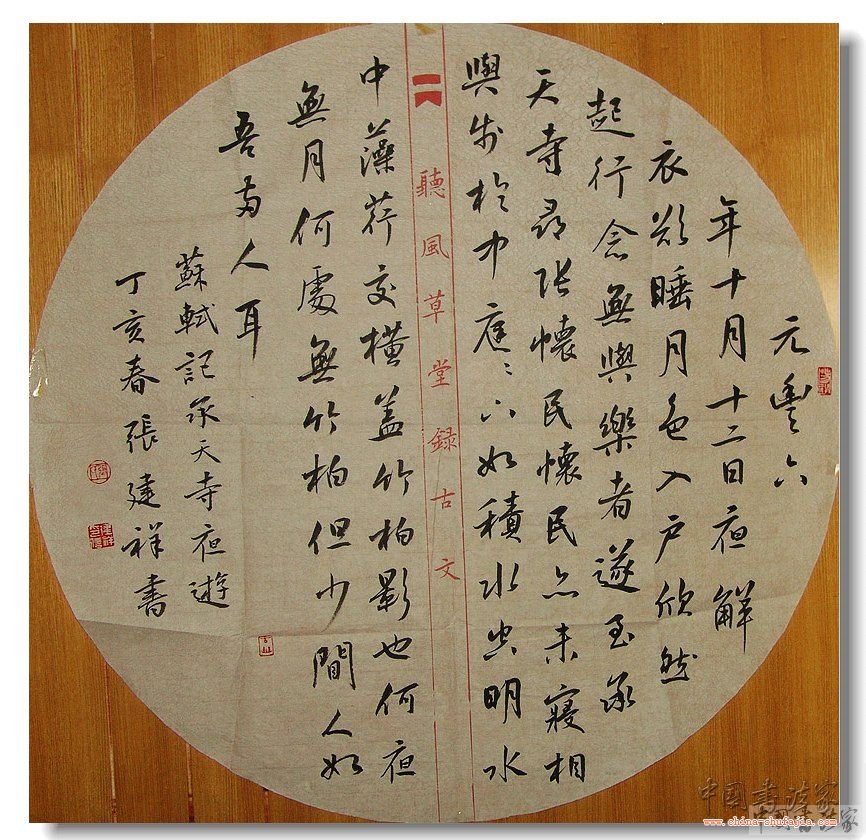 元豐六
年十月十二日夜解
衣欲睡月色入戶欣然
起行念無與樂者遂至承
天寺尋張懷民懷民亦未寢相
與步於中庭〻下如積水空明水
聽風草堂錄古文
中藻荇交橫盖竹柏影也何夜
無月何處無竹柏但少閒人如
吾兩人耳
蘇軾記承天寺夜遊
丁亥春張建祥書
中國書法家
www.china-shufajia.com